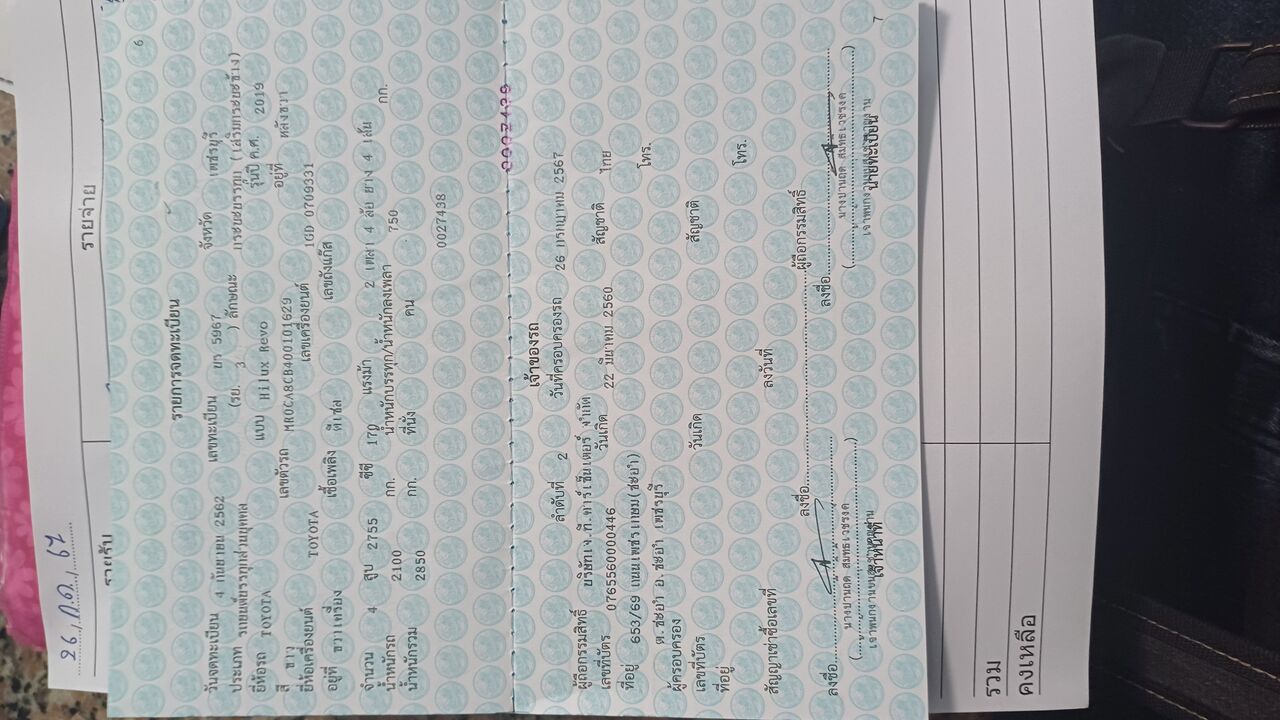 26 ก.ค. 67
รายรับ
รายจ่าย
6
รายการจดทะเบียน
วันจดทะเบียน 4 กันยายน 2562 เลขทะเบียน ยก 5967 จังหวัด เพชรบุรี
ประเภท รถยนต์บรรทุกส่วนบุคคล (รย. 3 ) ลักษณะ กระบะบรรทุก (เสริมกระบะข้าง)
ยี่ห้อรถ TOYOTA แบบ Hilux Revo รุ่นปี ค.ศ. 2019
สี ขาว เลขตัวรถ MR0CA8CB400101629 อยู่ที่ หลังขวา
ยี่ห้อเครื่องยนต์ TOYOTA เลขเครื่องยนต์ 1GD 0709331
อยู่ที่ ขวาเครื่อง เชื้อเพลิง ดีเซล เลขถังแก๊ส
จำนวน 4 สูบ 2755 ซีซี 170 แรงม้า 2 เพลา 4 ล้อ ยาง 4 เส้น
น้ำหนักรถ 2100 กก. น้ำหนักบรรทุก/น้ำหนักลงเพลา 750 กก.
น้ำหนักรวม 2850 กก. ที่นั่ง คน
0027438
เจ้าของรถ
ลำดับที่ 2 วันที่ครอบครองรถ 26 กรกฎาคม 2567
ผู้ถือกรรมสิทธิ์ บริษัทเจ.ที.คาร์เซ็นเตอร์ จำกัด
เลขที่บัตร 0765560000446 วันเกิด 22 มีนาคม 2560 สัญชาติ ไทย
ที่อยู่ 653/69 ถนนเพชรเกษม(ชะอำ) โทร.
ต.ชะอำ อ.ชะอำ เพชรบุรี
ผู้ครอบครอง
เลขที่บัตร วันเกิด สัญชาติ
ที่อยู่ โทร.
สัญญาเช่าซื้อเลขที่ ลงวันที่
ลงชื่อ ผู้ถือกรรมสิทธิ์
ลงชื่อ ลงชื่อ
เจ้าหน้าที่ นายทะเบียน
7
รวม
คงเหลือ